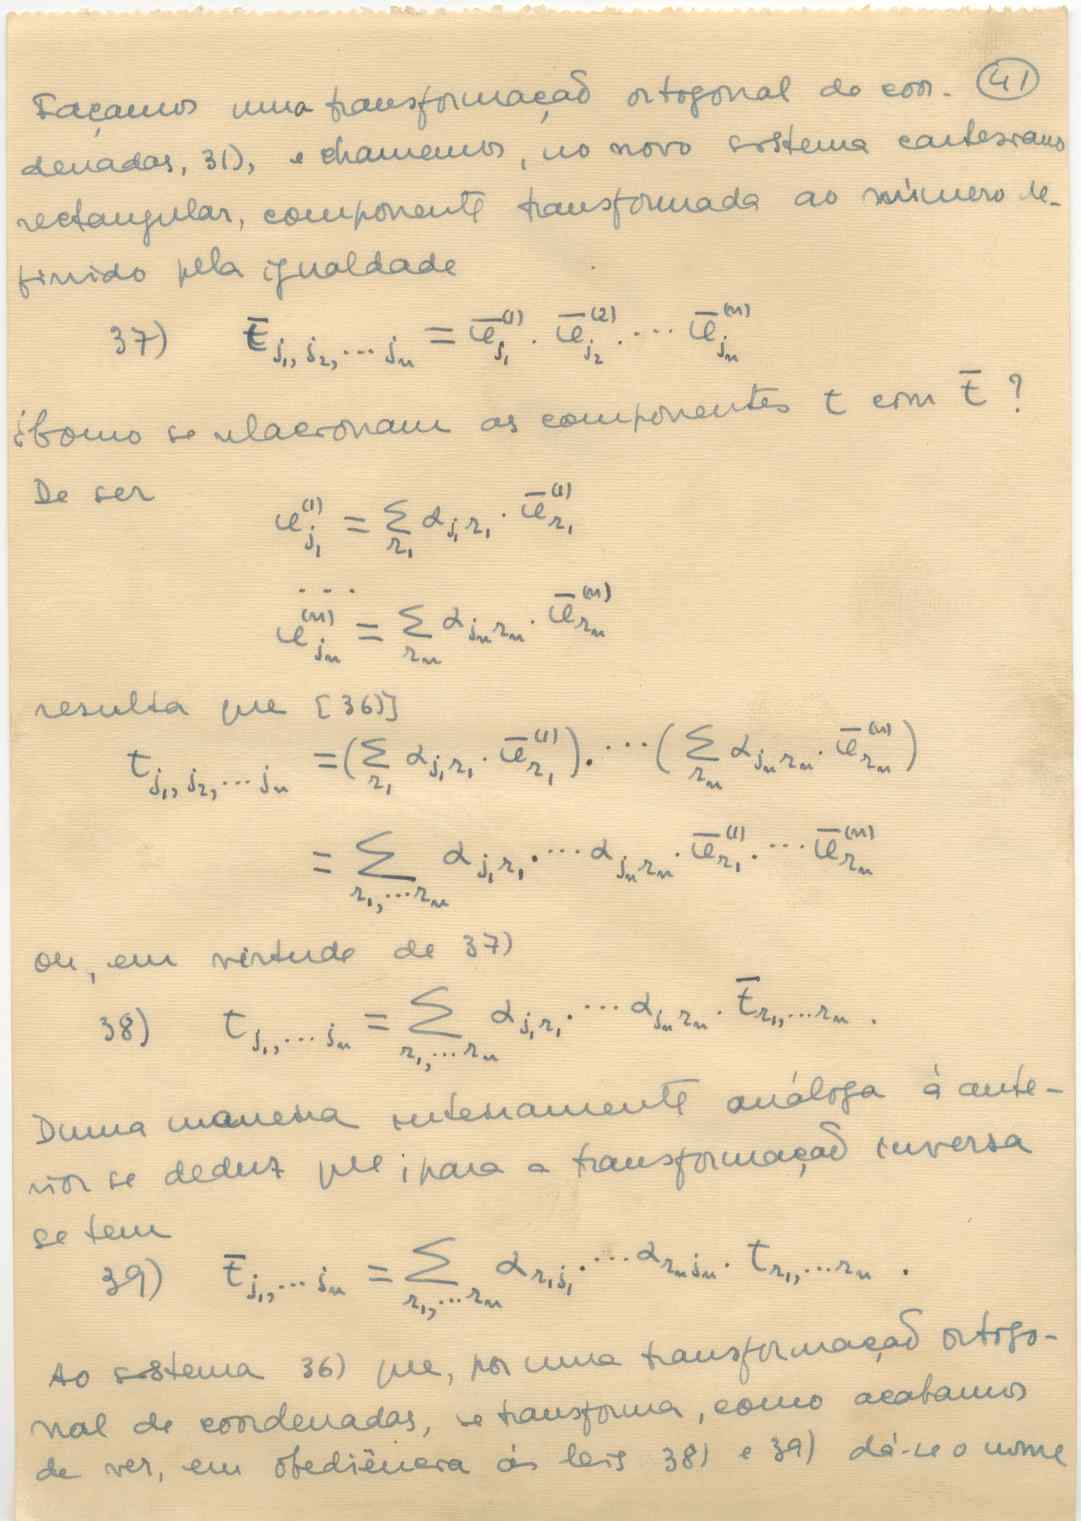 Façamos uma transformação ortogonal de coor- (41)
denadas, 31), e chamemos, no novo sistema cartesiano
rectangular, componente transformada ao número de-
finido pela igualdade
37) t̄_{j₁, j₂, ... jₙ} = ū_{j₁}^{(1)} . ū_{j₂}^{(2)} . ... ū_{jₙ}^{(n)}
¿Como se relacionam as componentes t com t̄ ?
De ser
u_{j₁}^{(1)} = Σ_{r₁} α_{j₁r₁} . ū_{r₁}^{(1)}
. . .
u_{jₙ}^{(n)} = Σ_{rₙ} α_{jₙrₙ} . ū_{rₙ}^{(n)}
resulta que [36)]
t_{j₁, j₂, ... jₙ} = (Σ_{r₁} α_{j₁r₁} . ū_{r₁}^{(1)}) . ... (Σ_{rₙ} α_{jₙrₙ} . ū_{rₙ}^{(n)})
= Σ_{r₁, ... rₙ} α_{j₁r₁} . ... α_{jₙrₙ} . ū_{r₁}^{(1)} . ... ū_{rₙ}^{(n)}
ou, em virtude de 37)
38) t_{j₁, ... jₙ} = Σ_{r₁, ... rₙ} α_{j₁r₁} . ... α_{jₙrₙ} . t̄_{r₁, ... rₙ} .
Duma maneira inteiramente análoga à ante-
rior se deduz que, para a transformação inversa
se tem
39) t̄_{j₁, ... jₙ} = Σ_{r₁, ... rₙ} α_{r₁j₁} . ... α_{rₙjₙ} . t_{r₁, ... rₙ} .
Ao sistema 36) que, por uma transformação ortogo-
nal de coordenadas, se transforma, como acabamos
de ver, em obediência às leis 38) e 39) dá-se o nome